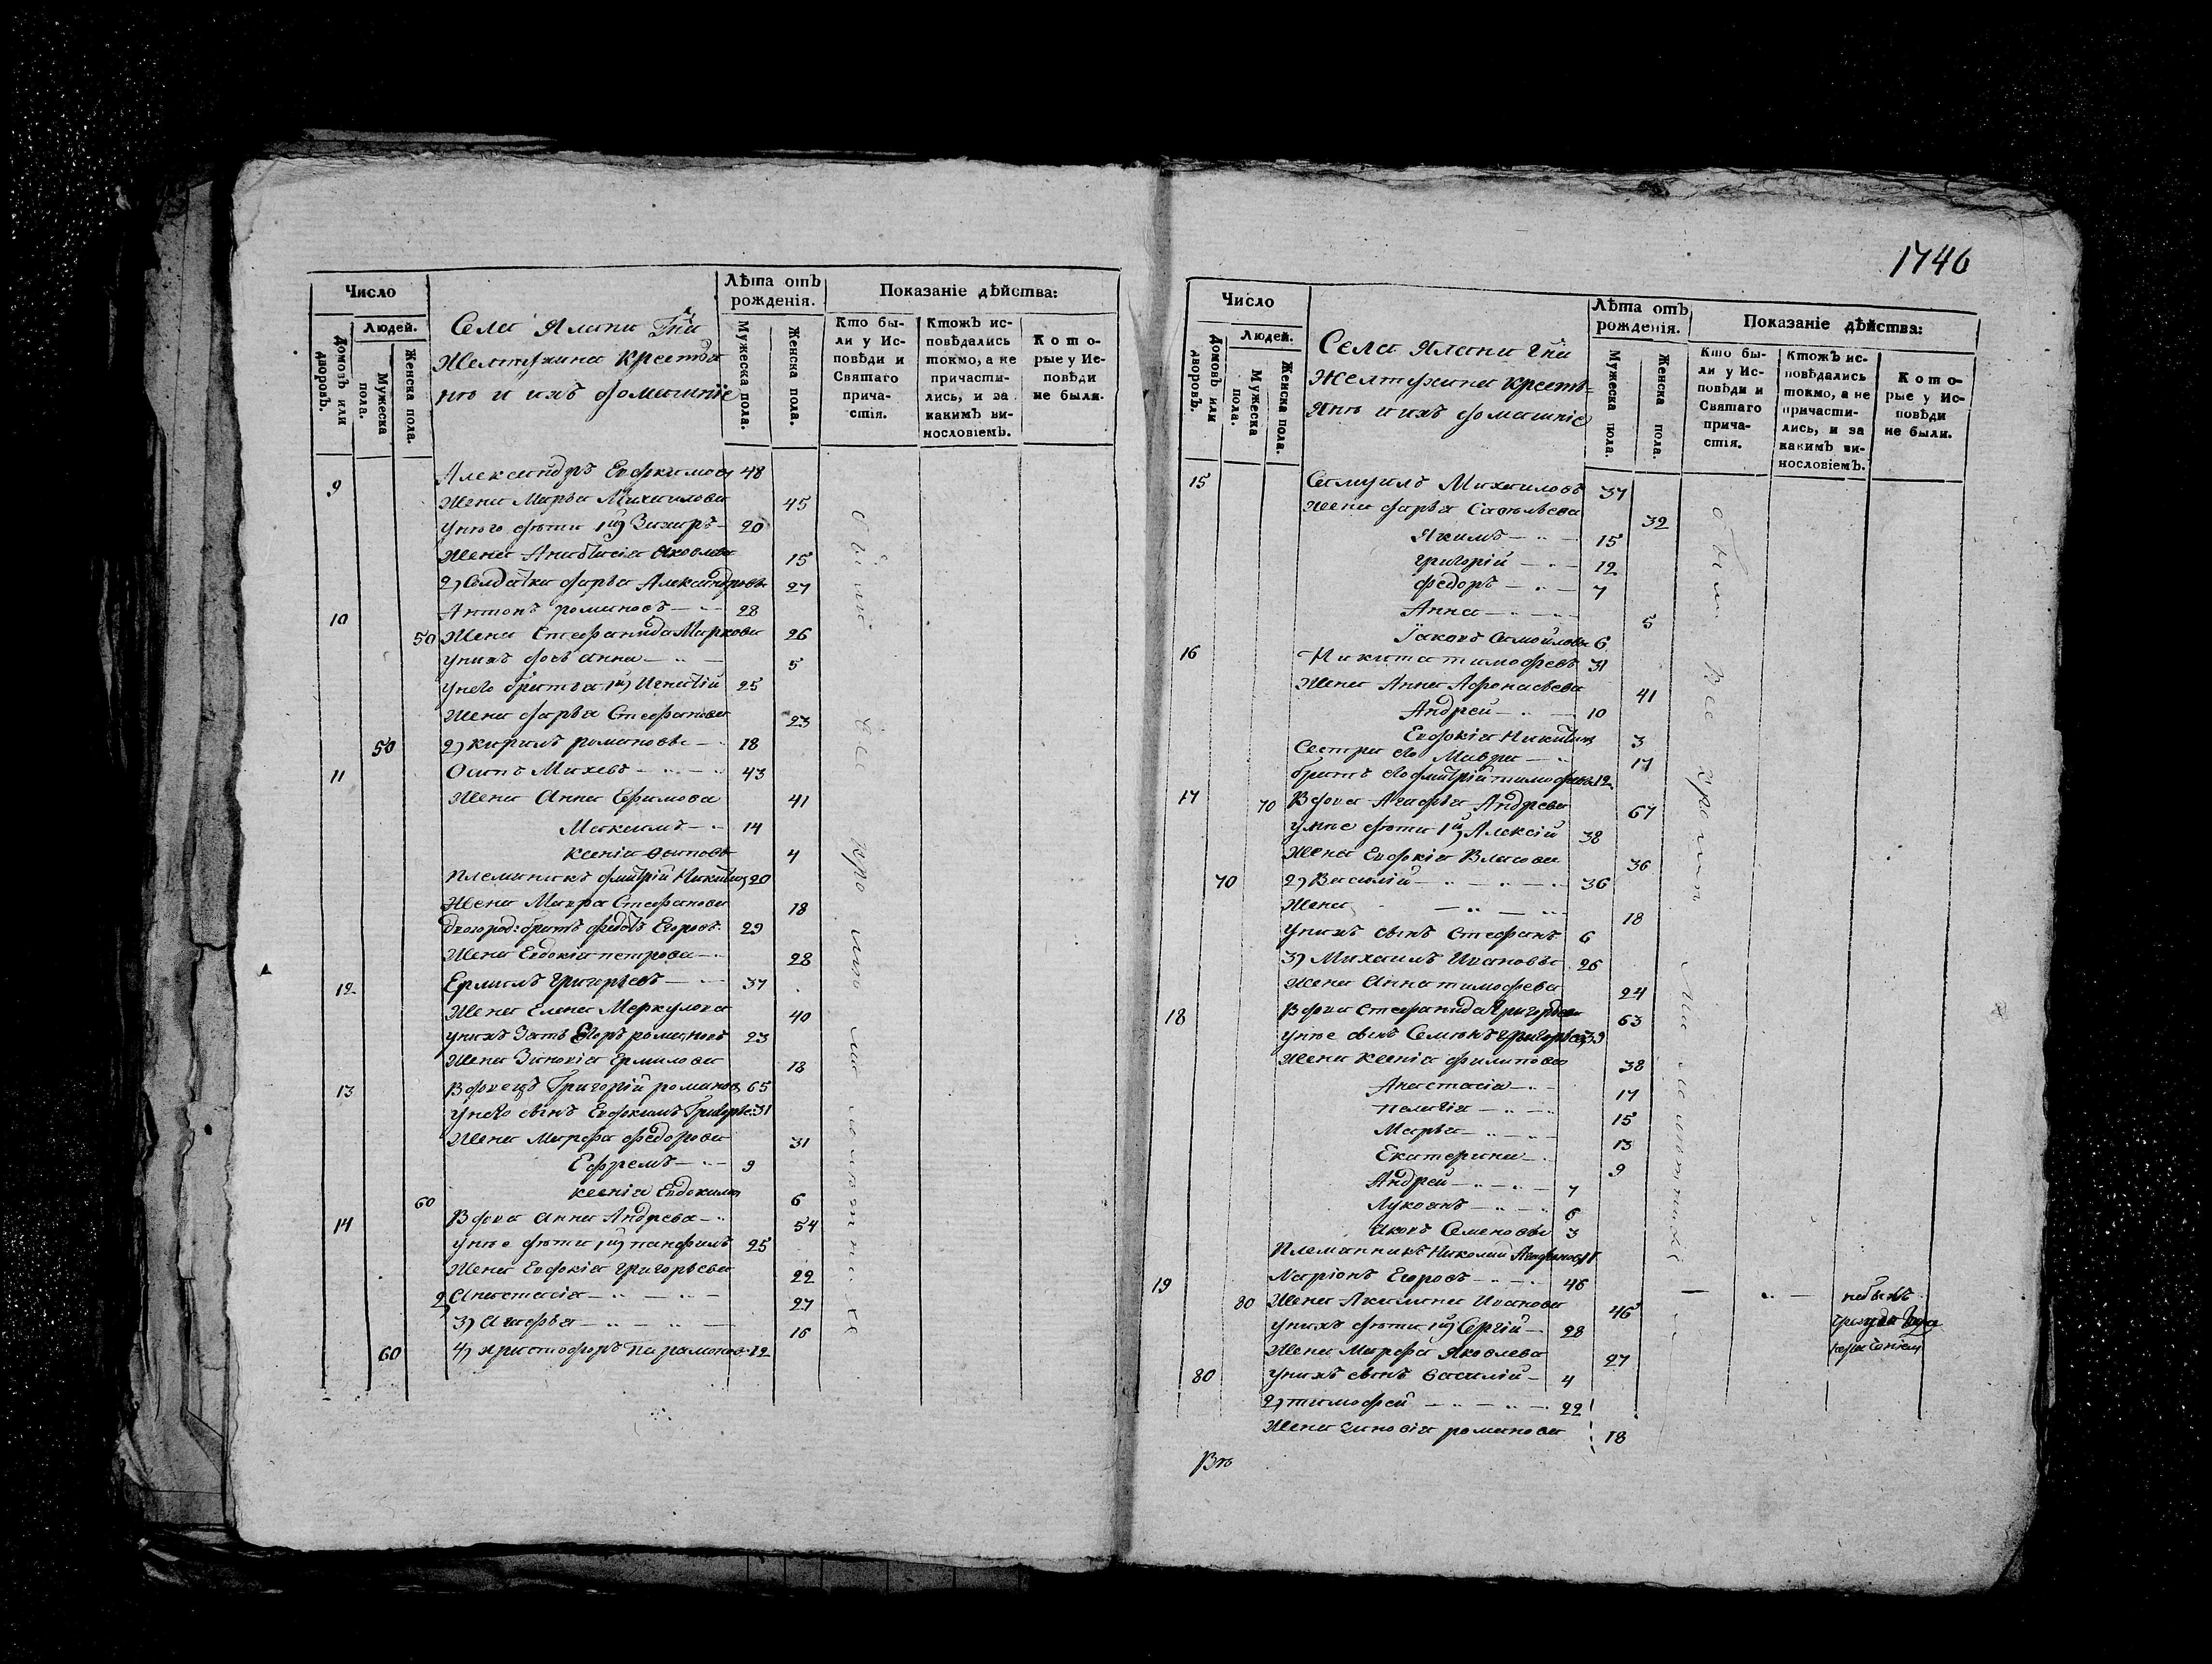 Число
Людей.
Домовъ или дворовъ.
Мужеска пола.
Женска пола.
Села Ялани Гна
Желтухина крестья
не и ихъ домашніе
Лѣта отъ рожденія.
Мужеска пола.
Женска пола.
Показаніе дѣйства:
Кто были у Исповѣди и Святаго причастія.
Ктожъ исповѣдались токмо, а не причастились, и за какимъ винословіемъ.
Которые у Исповѣди не были.
9 Александръ Евдокимовъ 48
Жена Марѳа Михаилова 45
у него дѣти 1й) Захаръ 20
Жена Анастасіа Яковлева 15
2) Солдатка дарья Александрова 27
10 Антонъ романовъ 28
50 Жена Стефанида Маркова 26
у нихъ дочь анна 5
у него братья 1й) Игнатій 25
Жена дарья Стефанова 23
50 2) кирилъ романовъ 18
11 Осипъ Михевъ 43
Жена Анна Ефимова 41
Максимъ 14
ксенія осипова 4
племяникъ дмитрій Никитинъ 20
Жена Мавра Стефанова 18
двоюрод: братъ федотъ Егоровъ 29
Жена Евдокіа петрова 28
12 Ермилъ григорьевъ 37
Жена Елена Меркулова 40
у нихъ зять Егоръ романовъ 23
Жена Зиновіа ермилова 18
13 Вдовецъ Григорій романовъ 65
у него сынъ Евдокимъ Григорье: 31
Жена Марфа федорова 31
Ефремъ 9
60 ксеніа Евдокимо 6
14 Вдова анна Андреева 54
у нее дѣти 1й) панфилъ 25
Жена Евдокіа григорьева 22
2) Анастасіа 27
3) Агафья 16
60 4) христофоръ парамонов 12
были все кро ме ма ло лѣт ни хъ
1746
Число
Людей.
Домовъ или дворовъ.
Мужеска пола.
Женска пола.
Села Ялани Гна
Желтухина крестья=
яне и ихъ домашніе
Лѣта отъ рожденія.
Мужеска пола.
Женска пола.
Показаніе дѣйства:
Кто были у Исповѣди и Святаго причастія.
Ктожъ исповѣдались токмо, а не причастились, и за какимъ винословіемъ.
Которые у Исповѣди не были.
15 Самуилъ Михаиловъ 37
Жена дарья Савельева 32
Якимъ 15
григорій 12
федоръ 7
Анна 5
Іаковъ Самойловы 6
16 Никита тимофевъ 31
Жена Анна Афонасьева 41
Андрей 10
Евдокіа Никитины 3
Сестра его Мавра 17
братъ его дмитрій тимофевъ 12
17 70 Вдова Агафья Андреева 67
у нее дѣти 1й) Алексій 38
Жена Евдокіа Власова 36
70 2) Василій 36
Жена 18
у нихъ сынъ Стефанъ 6
3) Михаилъ Ивановы 26
Жена Анна тимофева 24
18 Вдова Стефанида Григорьева 63
у нее сынъ Семенъ григорьевъ 39
Жена ксеніа филипова 38
Анастасіа 17
пелагіа 15
Марья 13
Екатерина 9
Андрей 7
Лукоянъ 6
Яковъ Семеновы 3
племянникъ Николай
19 Ларіонъ Егоровъ 46
80 Жена Акилина Иванова 46
у нихъ дѣти 1й) Сергій 28
Жена Марфа Яковлева 27
80 у нихъ сынъ василій 4
2) тимофей 22
Жена зиновіа романова 18
небылъ
Всѣ